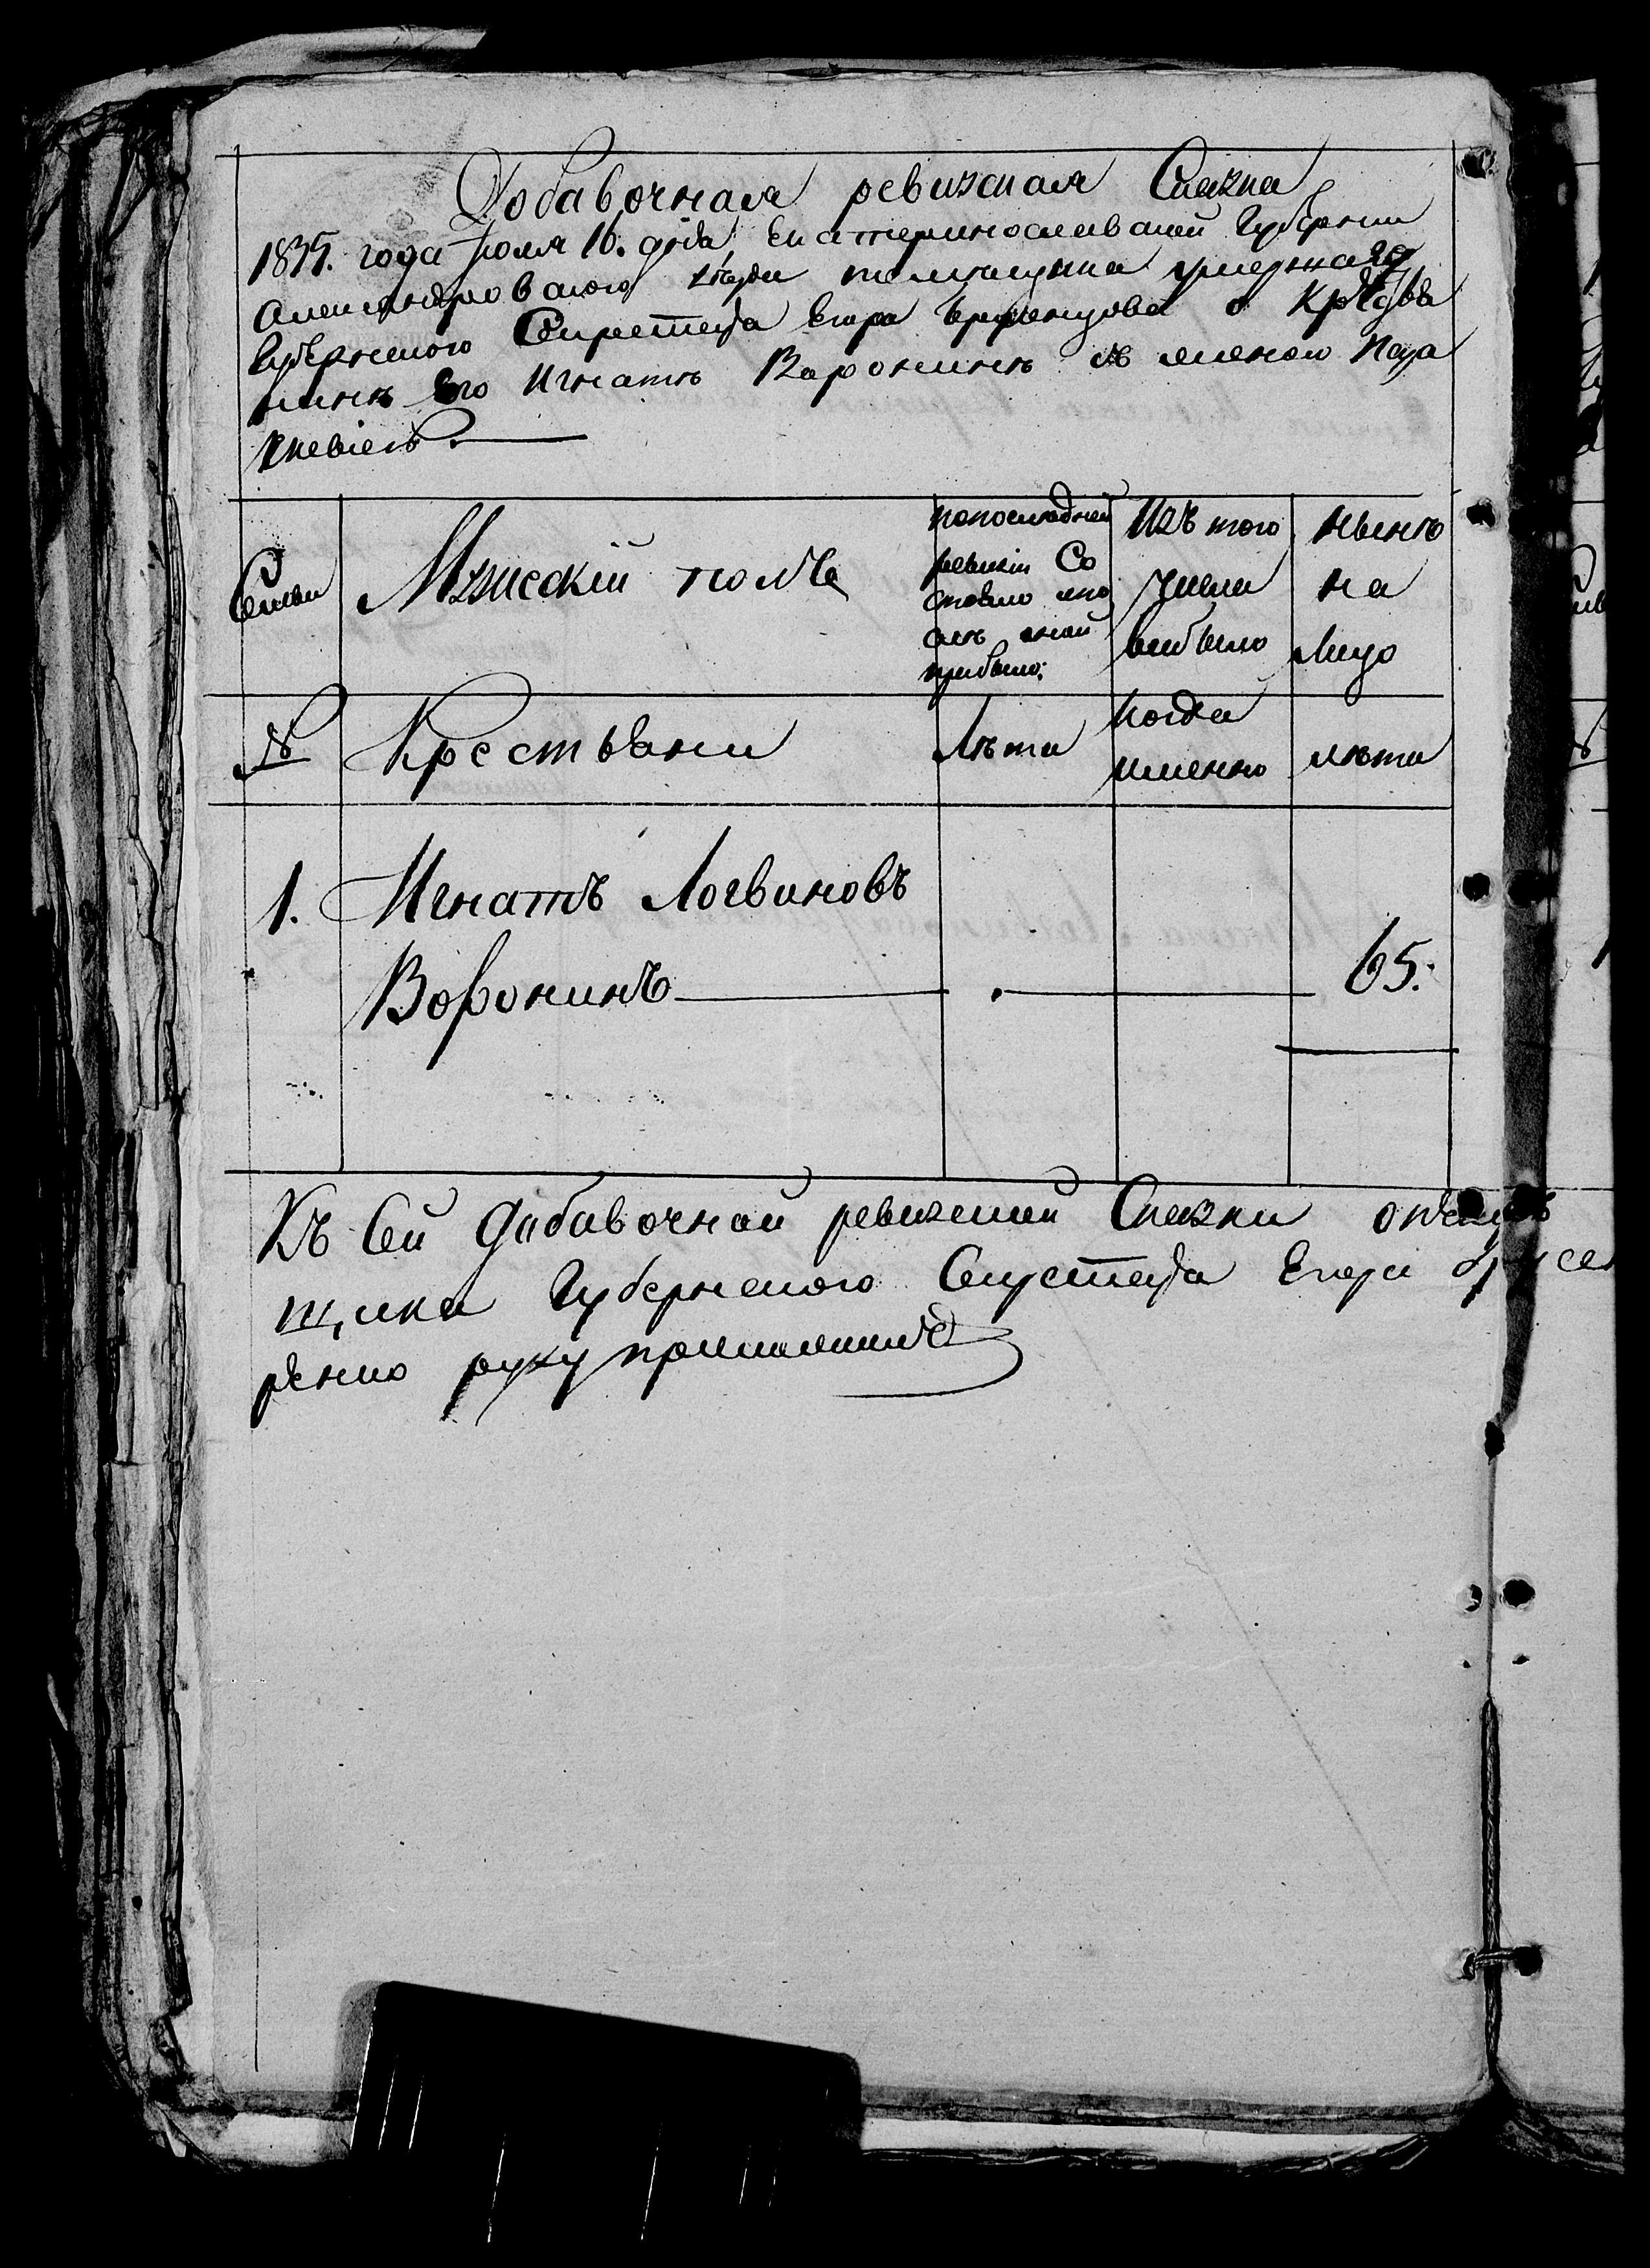 Добавочная ревизская Сказка
1835. года Іюля 16. дня, Екатеринославской Губерніи
Александровского уезда помещика умершаго
Губернского Секретаря Егора о Крестья
нинѣ Его Игнатѣ Воронинѣ съ женою
Семьи
Мужескій полъ
попоследней
ревизіи Со
стояло ипо
слѣ оной
прибыло:
Изъ того
числа
выбыло
Нынѣ
на
Лицо
№
Крестьяни
Лѣта
когда
именно
лѣта
1. Игнатъ Логвиновъ
Воронинъ 65.
Къ Сей Добавочной ревизской Сказки
щика Губернского Секретаря Егора
рѣнко руку приложилъ